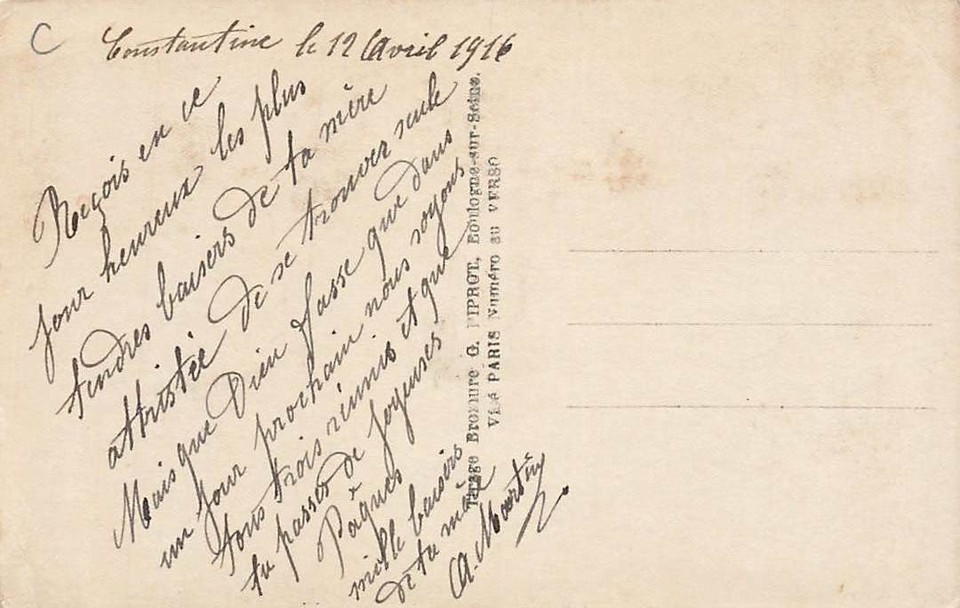 C
Constantine le 12 Avril 1916
Reçois en ce
jour heureux les plus
tendres baisers de ta mère
attristée de se trouver seule
Mais que Dieu fasse que dans
un jour prochain nous soyons
tous trois réunis et que
tu passes de joyeuses
Pâques
mille baisers
de ta mère
A. Martin
Tirage Bromure G. PIPROT, Boulogne-sur-Seine.
VISÉ PARIS Numéro au VERSO